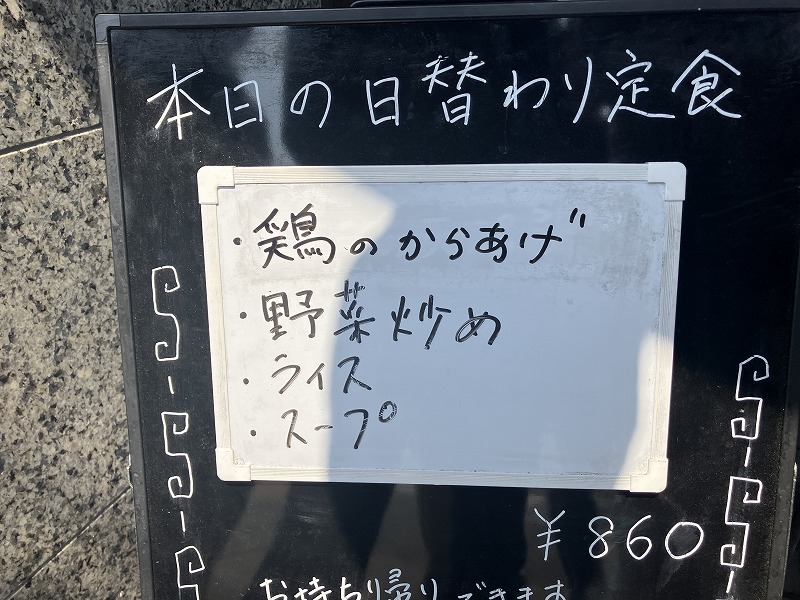 本日の日替わり定食
・鶏のからあげ
・野菜炒め
・ライス
・スープ
¥860
お持ち帰りできます